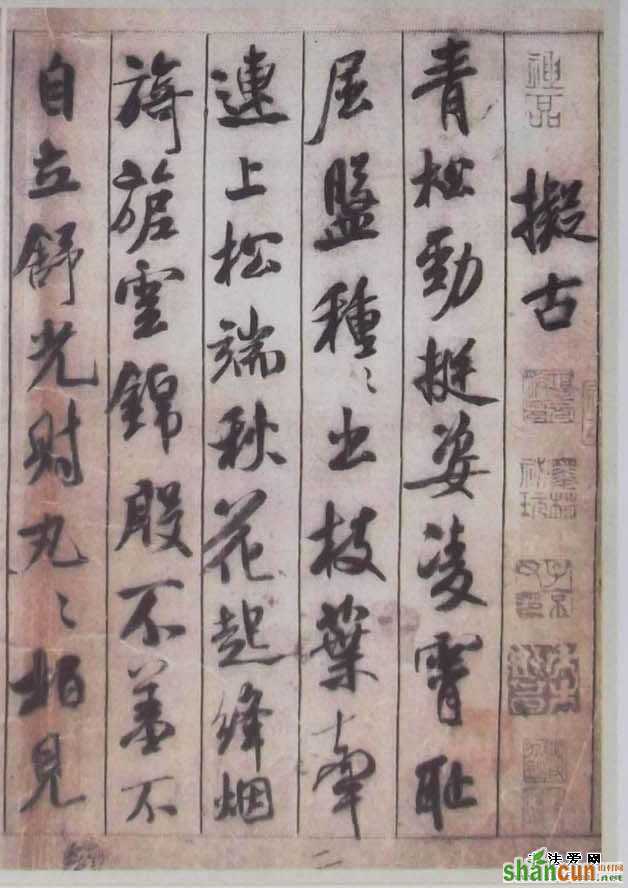 擬古
青松勁挺姿凌霄恥
屈盤種〻出枝葉牽
連上松端秋花起絳烟
旖旎雲錦殷不羞不
自立舒光射丸〻柏見
法爱网
shancun
.net